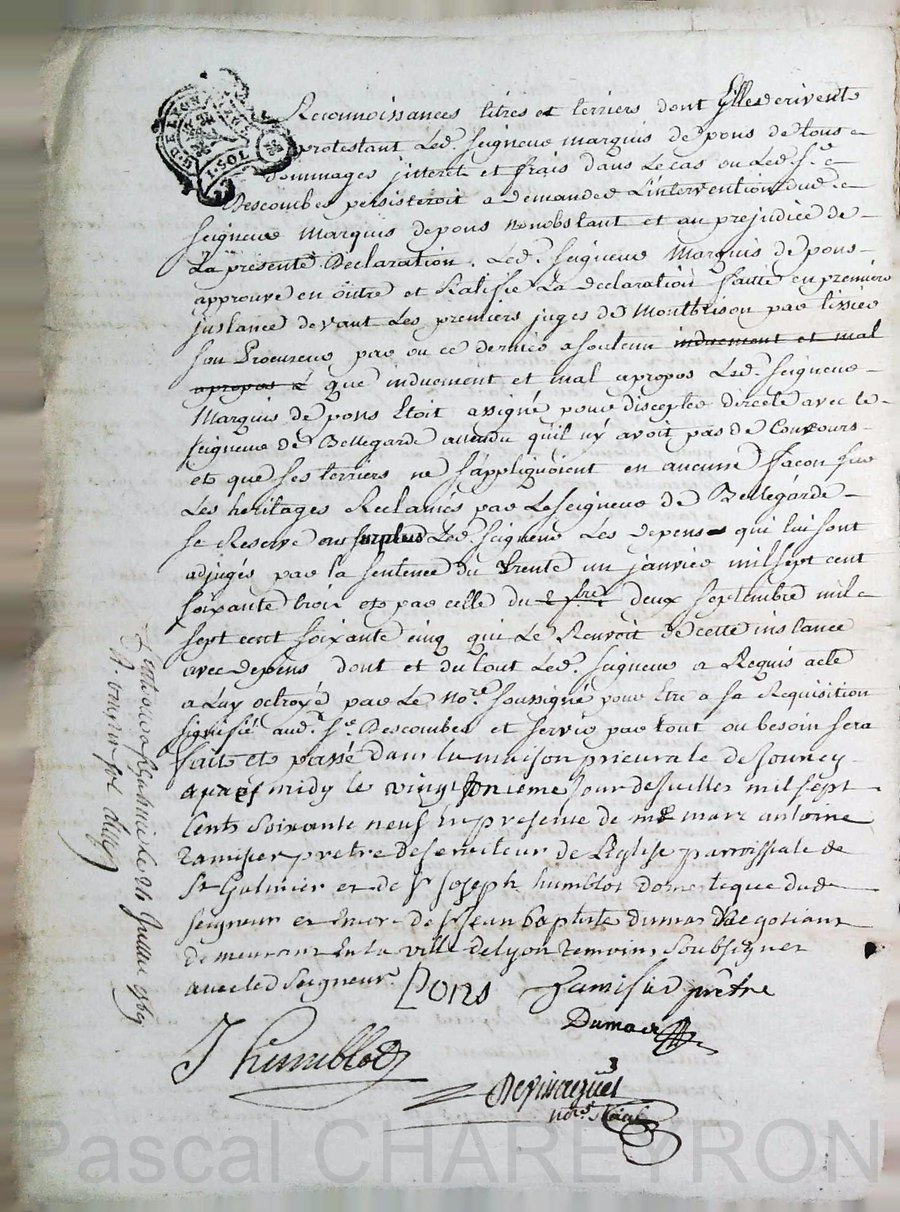 G.D. LYON
1. SOL
Reconnoissances titres et terriers dont
protestant Led. Seigneur marquis de pons de tous
dommages jnterets et frais dans Le cas ou Led. Sr.
Descombes persisteroit a demander L'intervention dud.
Seigneur Marquis de pons nonobstant et au prejudice de
La presente Declaration. Led. Seigneur Marquis de pons
approuve en outre et Ratifie La declaration faitte en premiere
jnstance devant Les premiers juges de Montbrison par
son Procureur par ou ce dernier a soutenu induement et mal
apropos que induement et mal apropos Led. Seigneur
Marquis de pons Etoit assigné pour discepter directe avec le
Seigneur de Bellegarde attendu qu'il ny avoit pas de Concours
et que ses terriers ne s'appliquoient en aucune facon sur
Les heritages Reclamés par Le Seigneur de Bellegarde
se Reserve au surplus Led. Seigneur Les depens qui lui sont
adjugés par la Sentence du trente un janvier mil sept cent
soixante trois et par celle du deux septembre mil
sept cent soixante cinq qui Le Renvoit de cette instance
avec depens dont et du tout Led. Seigneur a Requis acte
a Luy octroyé par Le Nore. soussigné pour être a sa Requisition
signifié aud. Sr. Descombes et servir par tout ou besoin sera
fait et passé dans la maison prieurale de
apres midy le vingt jour de juillet mil sept
Cents Soixante neuf en presence de me marc antoine
Ramiser pretre deserviteur de L'Eglise parroissiale de
St Galmier et de Sr Joseph humblot domestique dud.
seigneur et encore de Sr Jean baptiste dumas Negotiant
demeurant en la ville de Lyon temoins Soubsignez
avec led Seigneur.
Pons
prêtre
Dumas
J humblot
nore. Royal
juillet 1769
Pascal CHAREYRON